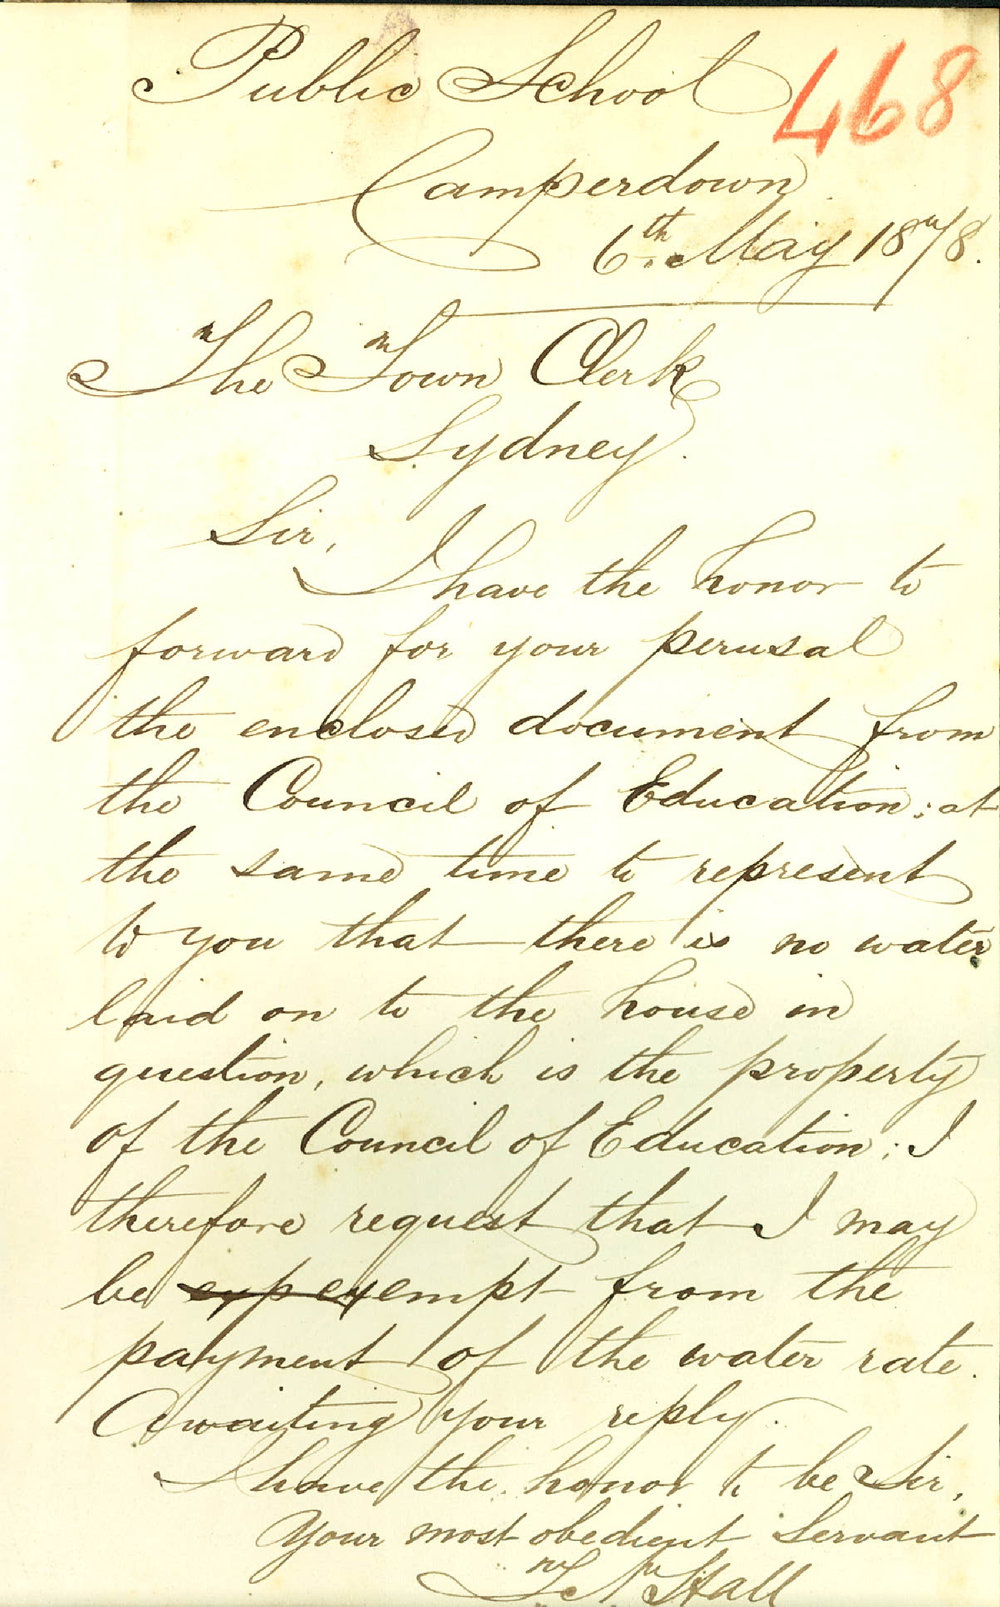 Public School
468
Camperdown
6th. May 1878.
The Town Clerk
Sydney.
Sir,
I have the honor to
forward for your perusal
the enclosed document from
the Council of Education; at
the same time to represent
to you that there is no water
laid on to the house in
question, which is the property
of the Council of Education; I
therefore request that I may
be exp exempt from the
payment of the water rate.
Awaiting your reply.
I have the honor to be Sir,
Your most obedient Servant
Hall